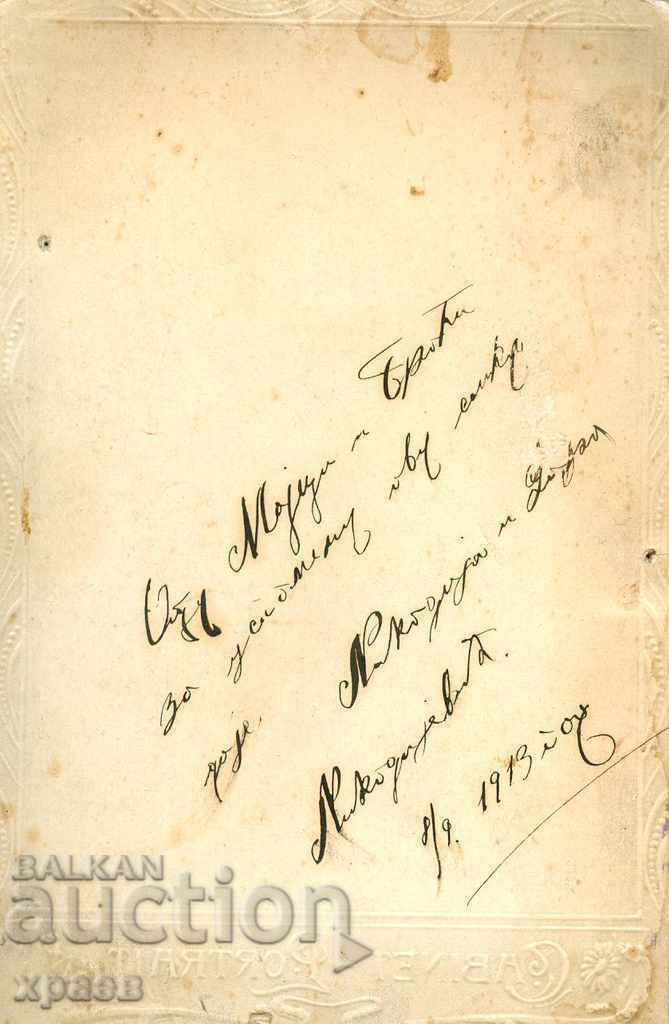 Оцу Мајци и Браћи
за успомену ову слику
даје Никодија и
Никодијевић.
8/9. 1913 год
BALKAN
auction
храов
CABINET PORTRAIT